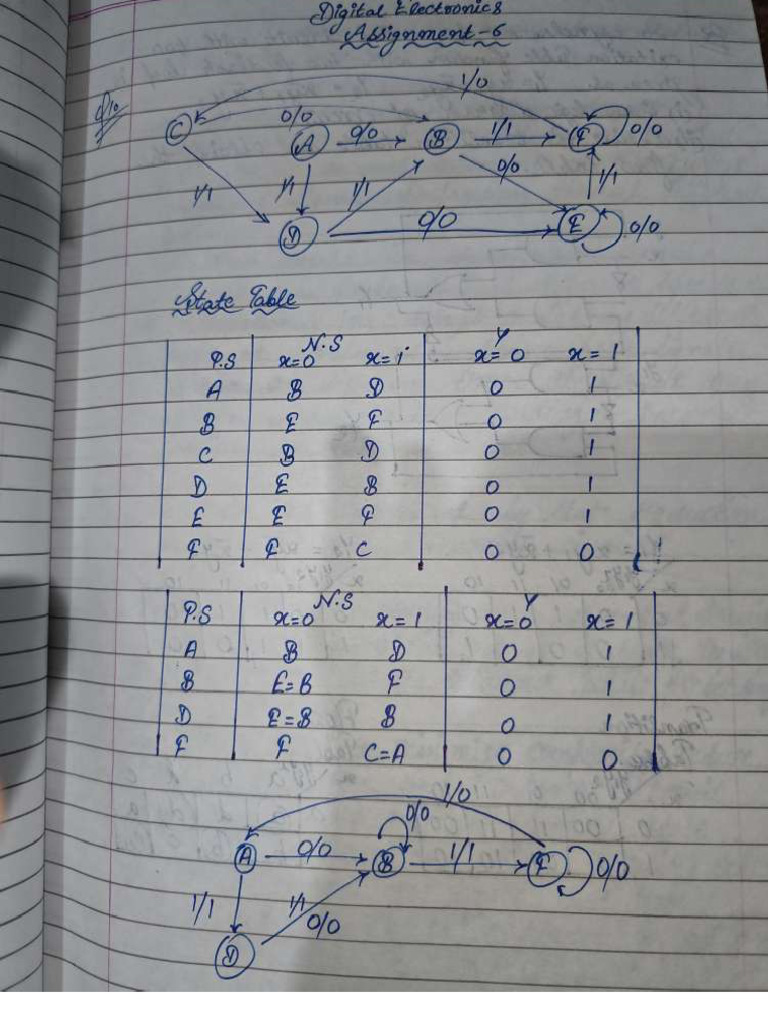 Digital Electronics
Assignment-6
Q1.
1/0
C 0/0 A 0/0 B 1/1 F 0/0
1/1 1/1 1/1 0/0 1/1
D 0/0 E 0/0
State Table
P.S N.S Y
x=0 x=1 x=0 x=1
A B D 0 1
B E F 0 1
C B D 0 1
D E B 0 1
E E F 0 1
F F C 0 0
P.S N.S Y
x=0 x=1 x=0 x=1
A B D 0 1
B E=B F 0 1
D E=B B 0 1
F F C=A 0 0
1/0
0/0
A 0/0 B 1/1 F 0/0
1/1 1/1
0/0
D